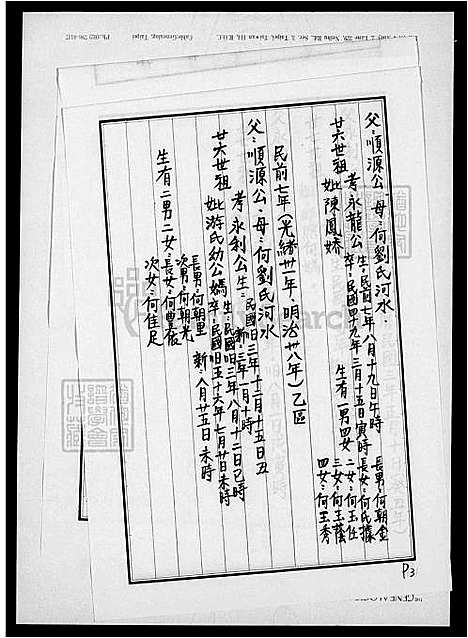 父：順源公、母：何劉氏河水．
考永龍公 生：民前七年八月十九日午時
廿六世祖
妣陳鳳嬌 卒：民國四十九年三月十五日寅時
生有一男四女
長男：何朝金
長女：何氏㨿
二女：何玉任
三女：何玉蔭
四女：何玉秀
民前七年（光緒卅一年．明治卅八年）乙區
父：順源公、母：何劉氏河水
考永利公 生：民國旧三年十二月十五日丑
新：三年一月十時
廿六世祖
妣游氏幼公媽 生：民國旧三年八月十二日已時
卒：民國旧五十六年七月廿日未時
新：八月廿五日未時
生有二男二女：
長男：何朝里
次男：何朝光
長女：何豊
次女：何佳足
P3